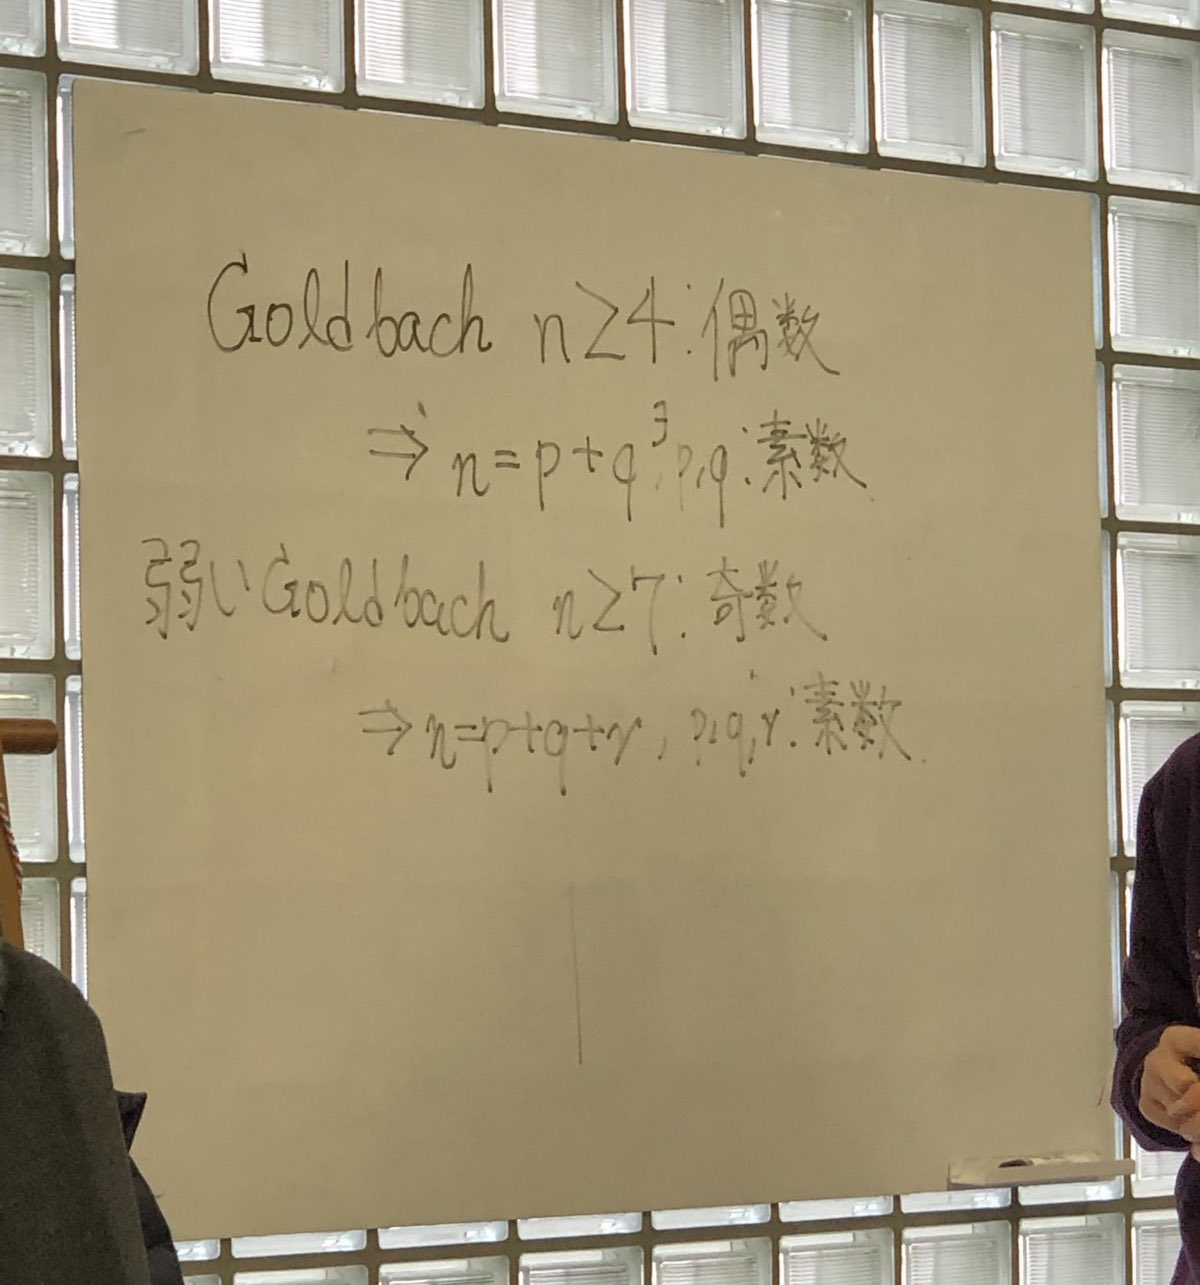 Goldbach n≥4:偶数
⇒ n=p+q, ∃p,q:素数
弱いGoldbach n≥7:奇数
⇒ n=p+q+r, p,q,r:素数.